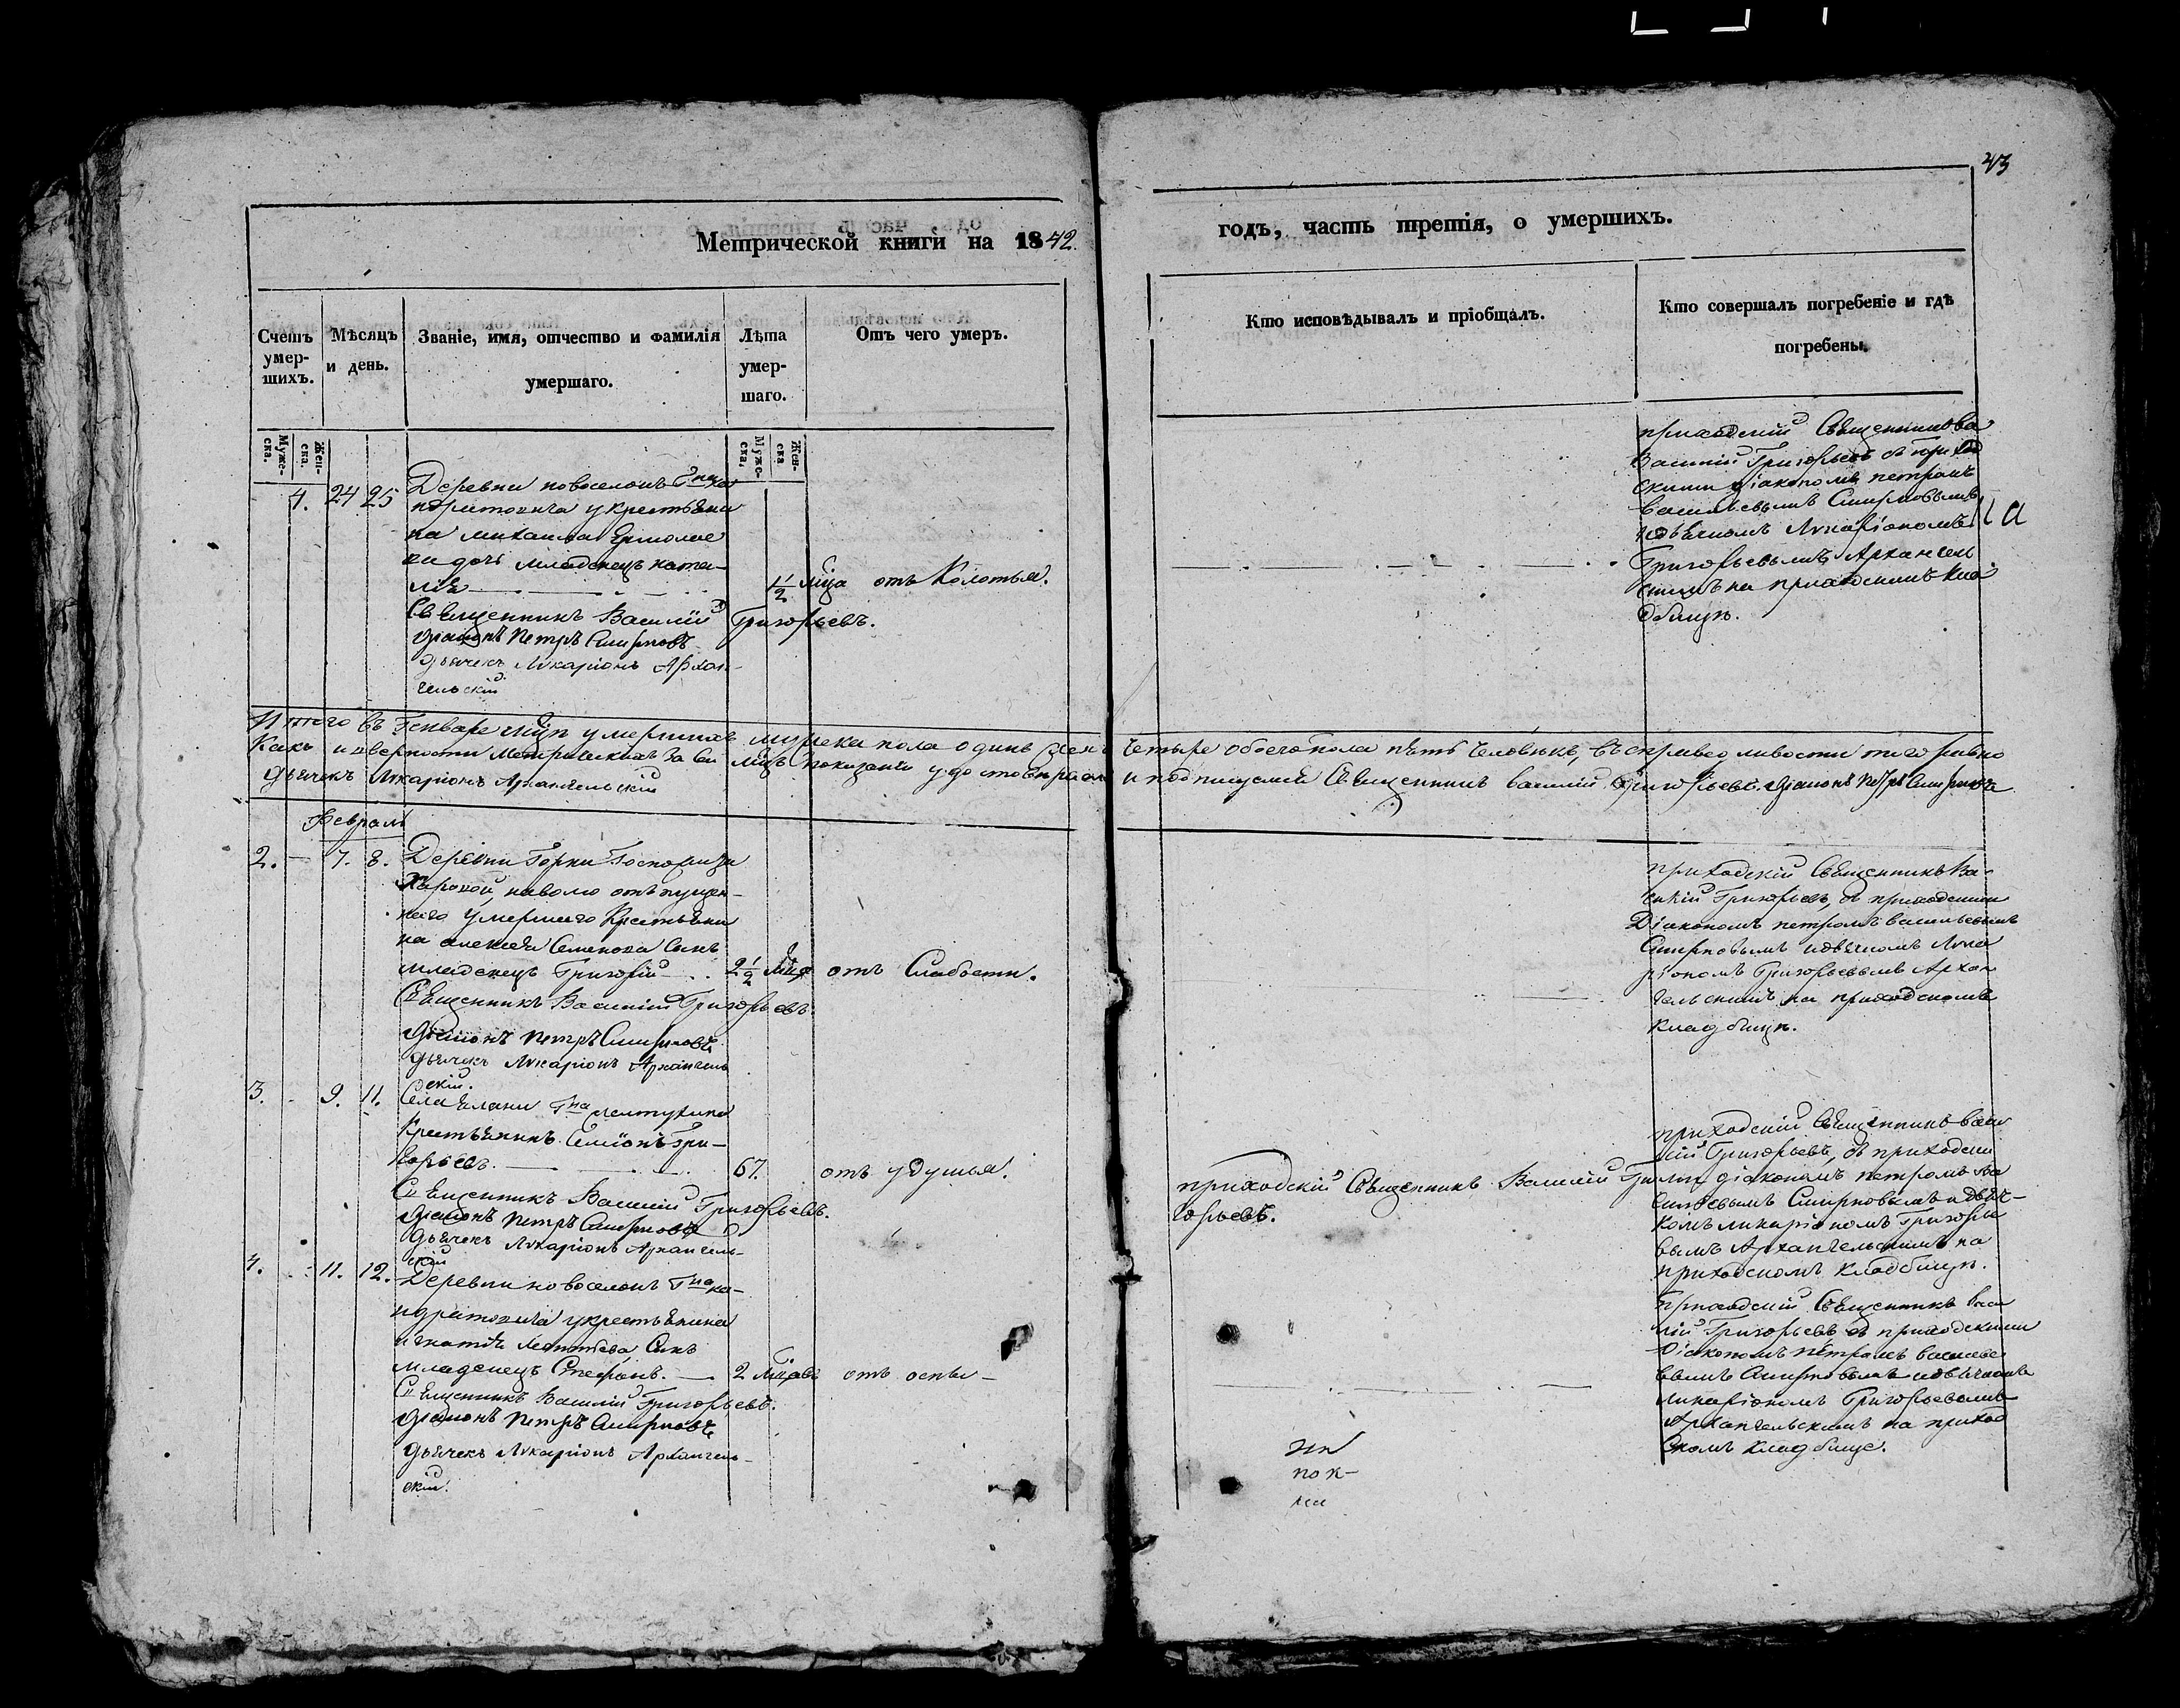 43
Метрической книги на 1842
годъ, часть третія, о умершихъ.
Счетъ умер-шихъ.
Мѣсяцъ и день.
Званіе, имя, отчество и фамилія умершаго.
Лѣта умер-шаго.
Отъ чего умеръ.
Кто исповѣдывалъ и пріобщалъ.
Кто совершалъ погребеніе и гдѣ погребены.
Муже-ска.
Жен-ска.
Муже-ска,
Жен-ска
4. 24 25
Деревни новоселокъ Гна
крестьяни
на михаила Ермолае
ва дочь младенецъ ната-
лія
1 1/2 мца отъ Колотья.
Священникъ Василій Григорьевъ.
Діаконъ Петръ Смирновъ
дьячекъ Лукаріонъ Архан-
гельскій
приходскій Священникъ Ва
Василій Григорьевъ съ приход
скими діакономъ петромъ
васильевымъ Смирновымъ
идьячкомъ Лукаріономъ
Григорьевымъ Арханген
скимъ на приходскомъ кла
дбищѣ.
Итого въ Генваре мцѣ умершихъ мужска пола одинъ женска четыре обоего пола пять человѣкъ, въ справедливости того равно
Какъ и верности метрическихъ за сей мцъ показаній удостоверяемъ и подписуемся Священникъ василій Григорьевъ. Діаконъ Петръ Смирновъ
дьячекъ Лукаріонъ Архангельскій
Февраль
2. 7. 8.
Деревни Горки Госпожи
наволю отъпущен-
наго умершаго Крестьяни
на алексѣя Семенова Сынъ
младенецъ Григорій
2 1/2 мца отъ Слабости.
Священникъ Василій Григорьевъ.
Діаконъ Петръ Смирновъ
дьячекъ Лукаріонъ Архангель
скій.
приходскій Священникъ Ва-
силій Григорьевъ, съ приходскими
Діакономъ петромъ васильевымъ
Смирновымъ идьячкомъ Лука
ріономъ Григорьевымъ Архан
гельскимъ на приходскомъ
кладбищѣ.
3. 9. 11.
Села Гна
Крестьянинъ Семіонъ Гри-
горьевъ.
67. отъ удушья.
Священникъ Василій Григорьевъ.
Діаконъ Петръ Смирновъ
дьячекъ Лукаріонъ Архангель-
скій
приходскій Священникъ Василій Гри-
горьевъ.
приходскій Священникъ васи
лій Григорьевъ, съ приходски
ми діакономъ петромъ ва
сильевымъ Смирновымъ идьяч-
комъ лукаріономъ Григорье
вымъ Архангельскимъ на
приходскомъ кладбищѣ.
4. 11. 12.
Деревни новоселокъ Гна ка-
крестьянина
игнатія Сынъ
младенецъ Стефанъ.
2 мцовъ отъ оспы
Священникъ Василій Григорьевъ.
Діаконъ Петръ Смирновъ
дьячекъ Лукаріонъ Архангель-
скій.
приходскій Священникъ васи
лій Григорьевъ съ приходскими
Діакономъ петромъ василье
вымъ Смирновымъ идьячкомъ
лукаріономъ Григорьевымъ
Архангельскимъ на приход
скомъ кладбище.